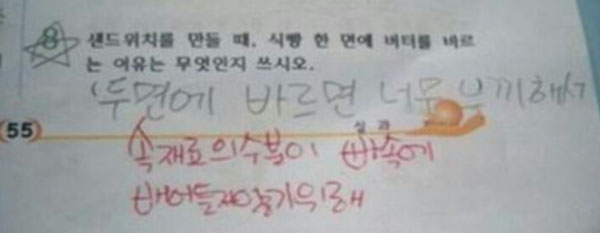 8 샌드위치를 만들 때, 식빵 한 면에 버터를 바르
는 이유는 무엇인지 쓰시오.
두면에 바르면 너무 느끼해서
(55)
속재료의수분이 빵속에
배어들지않게하기위해